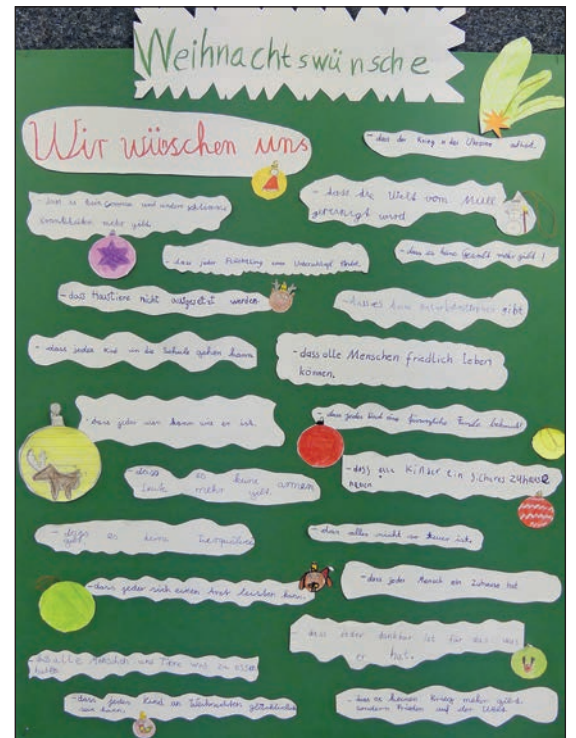 Weihnachtswünsche
Wir wüschen uns
- dass der Krieg in der Ukraine aufhört.
- dass es kein Corona und andere schlimme
Krankheiten mehr gibt.
- dass die Welt vom Müll
gereinigt wird
- dass jeder Flüchtling eine Unterkunft findet.
- dass es keine Gewalt mehr gibt!
- dass Haustiere nicht ausgesetzt werden.
- dass es kein gibt
- dass jedes Kind in die Schule gehen kann.
- dass alle Menschen friedlich leben
können.
- dass jeder sein kann wie er ist.
- dass jedes Kind eine Familie bekommt
- dass es keine armen
Leute mehr gibt.
- dass alle Kinder ein sicheres Zuhause
haben
- dass es keine Tierquälerei
gibt.
- dass alles nicht so teuer ist.
- dass jeder sich einen Arzt leisten kann.
- dass jeder Mensch ein Zuhause hat
- dass jeder dankbar ist für das was
er hat.
- dass alle Menschen und Tiere was zu essen
haben
- dass jedes Kind an Weihnachten glücklich
sein kann.
- dass es keinen Krieg mehr gibt
sondern Frieden auf der Welt.